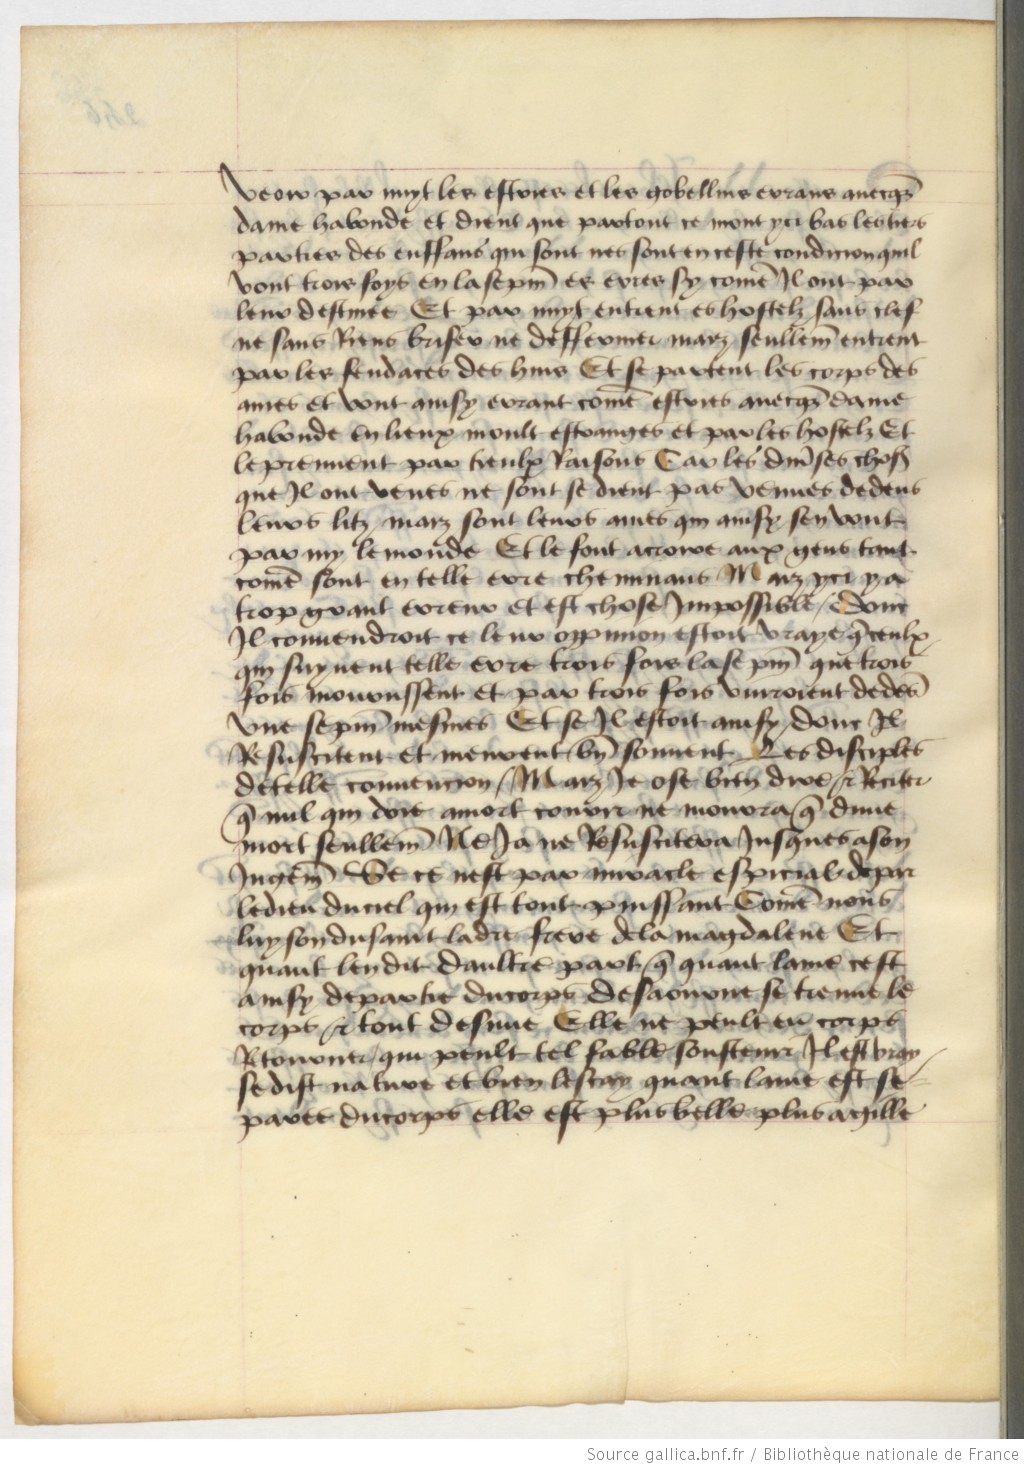 veoir par nuyt les estries et les gobellins errans auecq̃s
dame habonde et dient que partout ce mont ycy bas les tiers
parties des enffans qui sont nes sont en ceste condicion quil
vont trois foys en la sepm̃ es erres sy com̃e Il ont par
leur destinee Et par nuyt entrent es hostelz sans clef
ne sans Riens briser ne deffermer marz seullem̃ entrent
par les fendaces des huis Et se partent les corps des
ames et vont ainsy errant com̃e estries auecq̃s dame
habonde en lieux moult estranges et par les hostelz Et
le preuuent par tieulx Raisons Car les diũses chos̃
que Il ont veues ne sont se dient pas venues dedens
leurs litz marz sont leurs ames qui ainsy sen vont
par my le monde Et le font acroire aux gens tant
com̃e sont en telle erre cheminans Marz ycy y a
trop grant erreur et est chose Impossible / donc
Il conuendroit ce leur oppinion estoit vraye q̃ ceulx
qui suyuent telle erre trois fois la sepm̃ que trois
fois mourussent et par trois fois viuroient dedẽs
vne sepm̃ mesmes Et se Il estoit ainsy / donc Il
Resuscitent et meurent / bñ souuent Les disciples
de telle conuencion / Marz Je ose bien dire / et Reciter
q̃ nul qui doie a mort courir ne mourra / q̃ dune
mort seullem̃ Ne Ja ne Resuscitera Jusques a son
Jugem̃ Se ce nest par miracle especial de par
le dieu du ciel qui est tout puissant Com̃e nous
luyson du saint ladre frere de la magdalene Et
quant len dit daultre part / q̃ quant lame cest
ainsy departie du corps desaourne se tienne le
corps / et tout desnue Elle ne peult eu corps
Retourner / qui peult tel fable soustenir Il est vray /
se dist nature et bien le scay quant lame est se-
paree du corps elle est plus belle plus agille